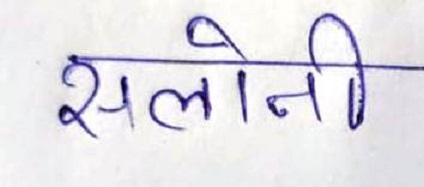 सलोनी